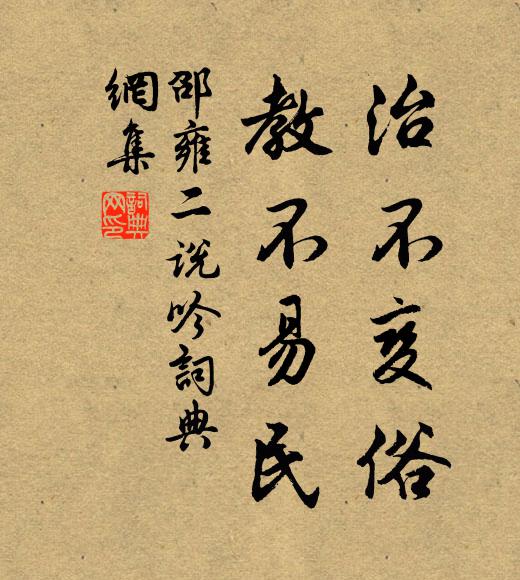 治不变俗
教不易民
邵雍二说吟词典
網集
詞典
网印